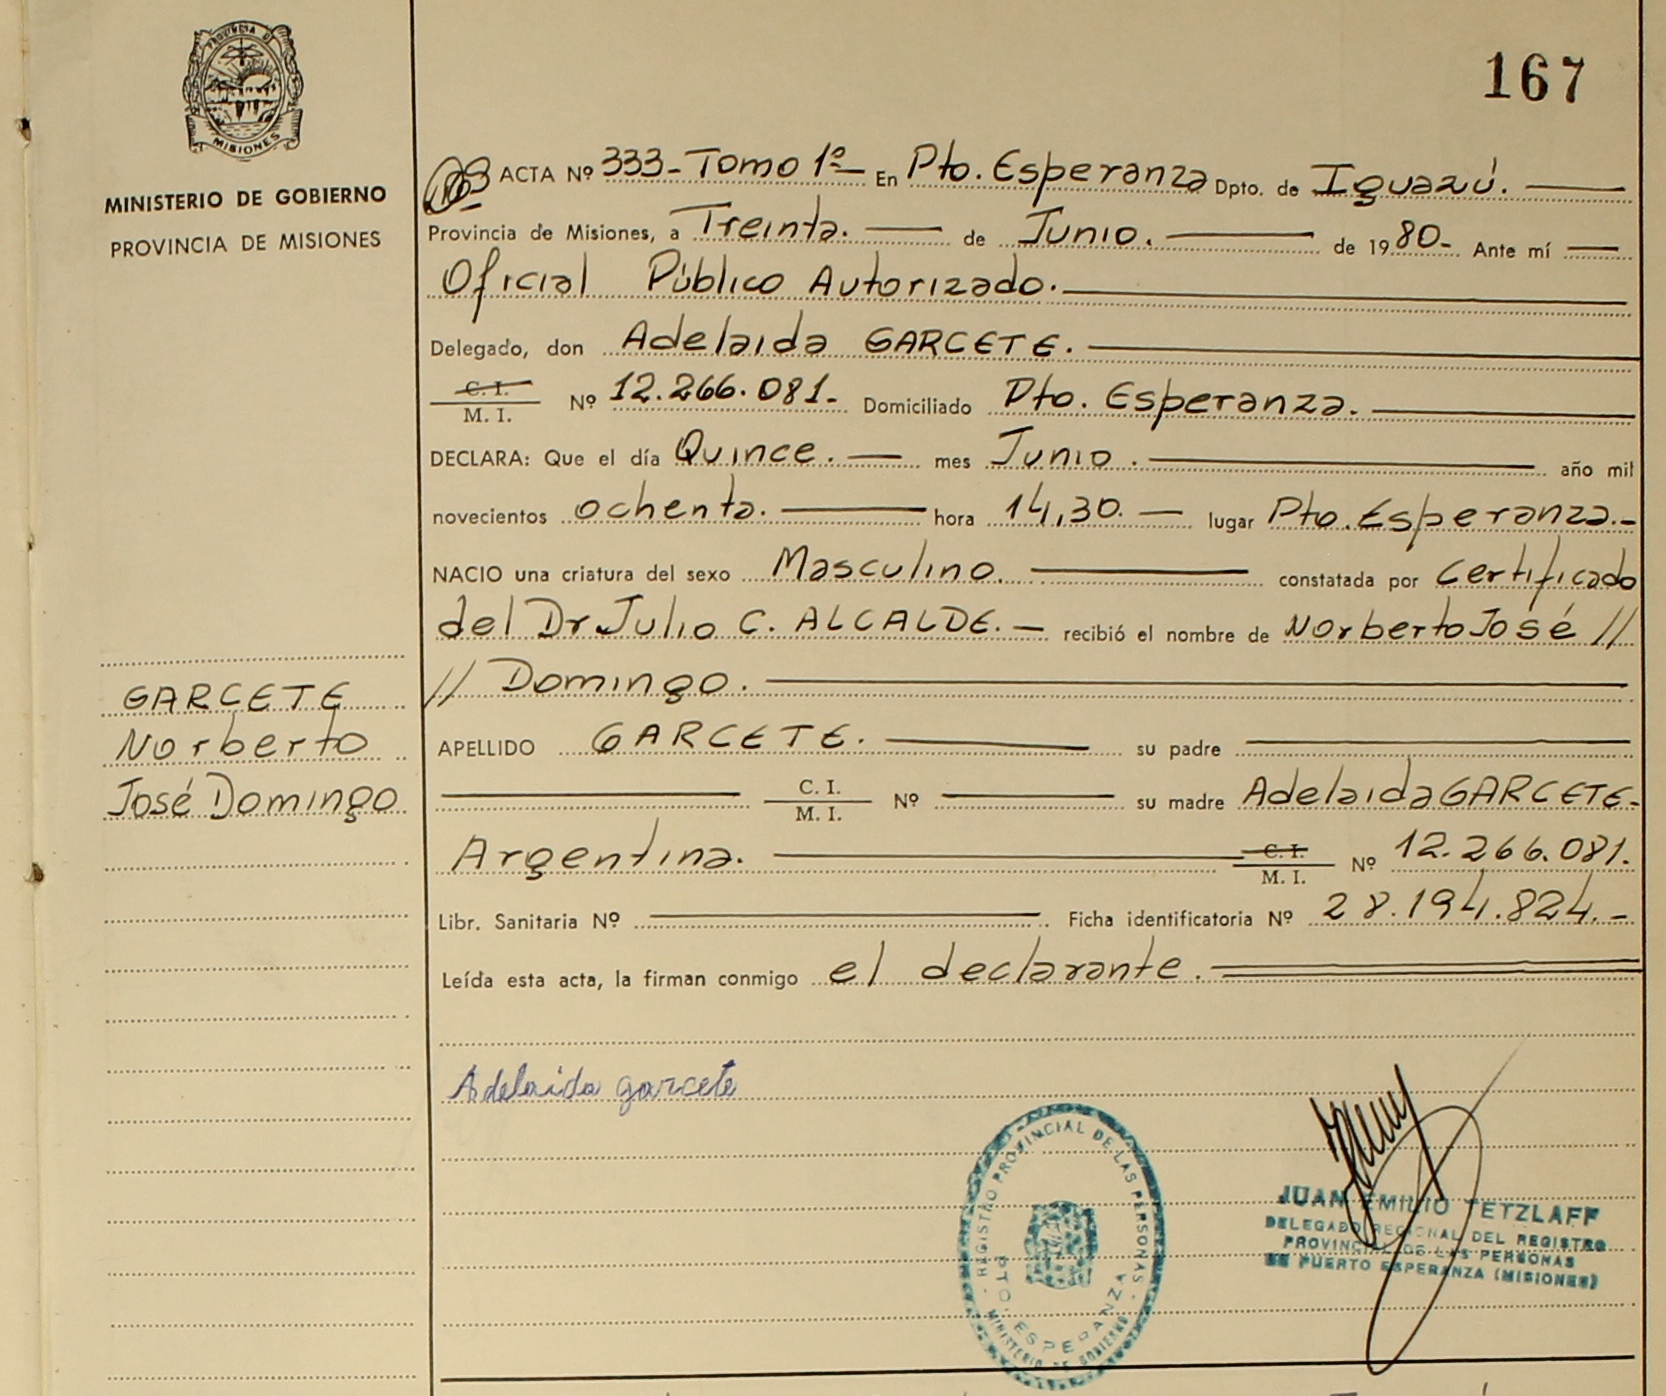 PROVINCIA DE
MISIONES
MINISTERIO DE GOBIERNO
PROVINCIA DE MISIONES
167
ACTA Nº 333-Tomo 1º- En Pto. Esperanza Dpto. de Iguazú.
Provincia de Misiones, a Treinta. de Junio. de 1980- Ante mí
Oficial Público Autorizado.
Delegado, don Adelaida GARCETE.
C. I.
M. I. Nº 12.266.081.- Domiciliado Pto. Esperanza.
DECLARA: Que el día Quince. mes Junio. año mil
novecientos ochenta. hora 14,30. lugar Pto. Esperanza.-
NACIO una criatura del sexo Masculino. constatada por Certificado
del Dr Julio C. ALCALDE. recibió el nombre de Norberto José //
// Domingo.
APELLIDO GARCETE. su padre
C. I.
M. I. Nº su madre Adelaida GARCETE-
Argentina. C. I.
M. I. Nº 12.266.081.
Libr. Sanitaria Nº Ficha identificatoria Nº 28.194.824.-
Leída esta acta, la firman conmigo el declarante.
GARCETE
Norberto
José Domingo
Adelaida garcete
REGISTRO PROVINCIAL DE LAS PERSONAS
PTO. ESPERANZA
MINISTERIO DE GOBIERNO
JUAN EMILIO TETZLAFF
DELEGADO REGIONAL DEL REGISTRO
PROVINCIAL DE LAS PERSONAS
DE PUERTO ESPERANZA (MISIONES)